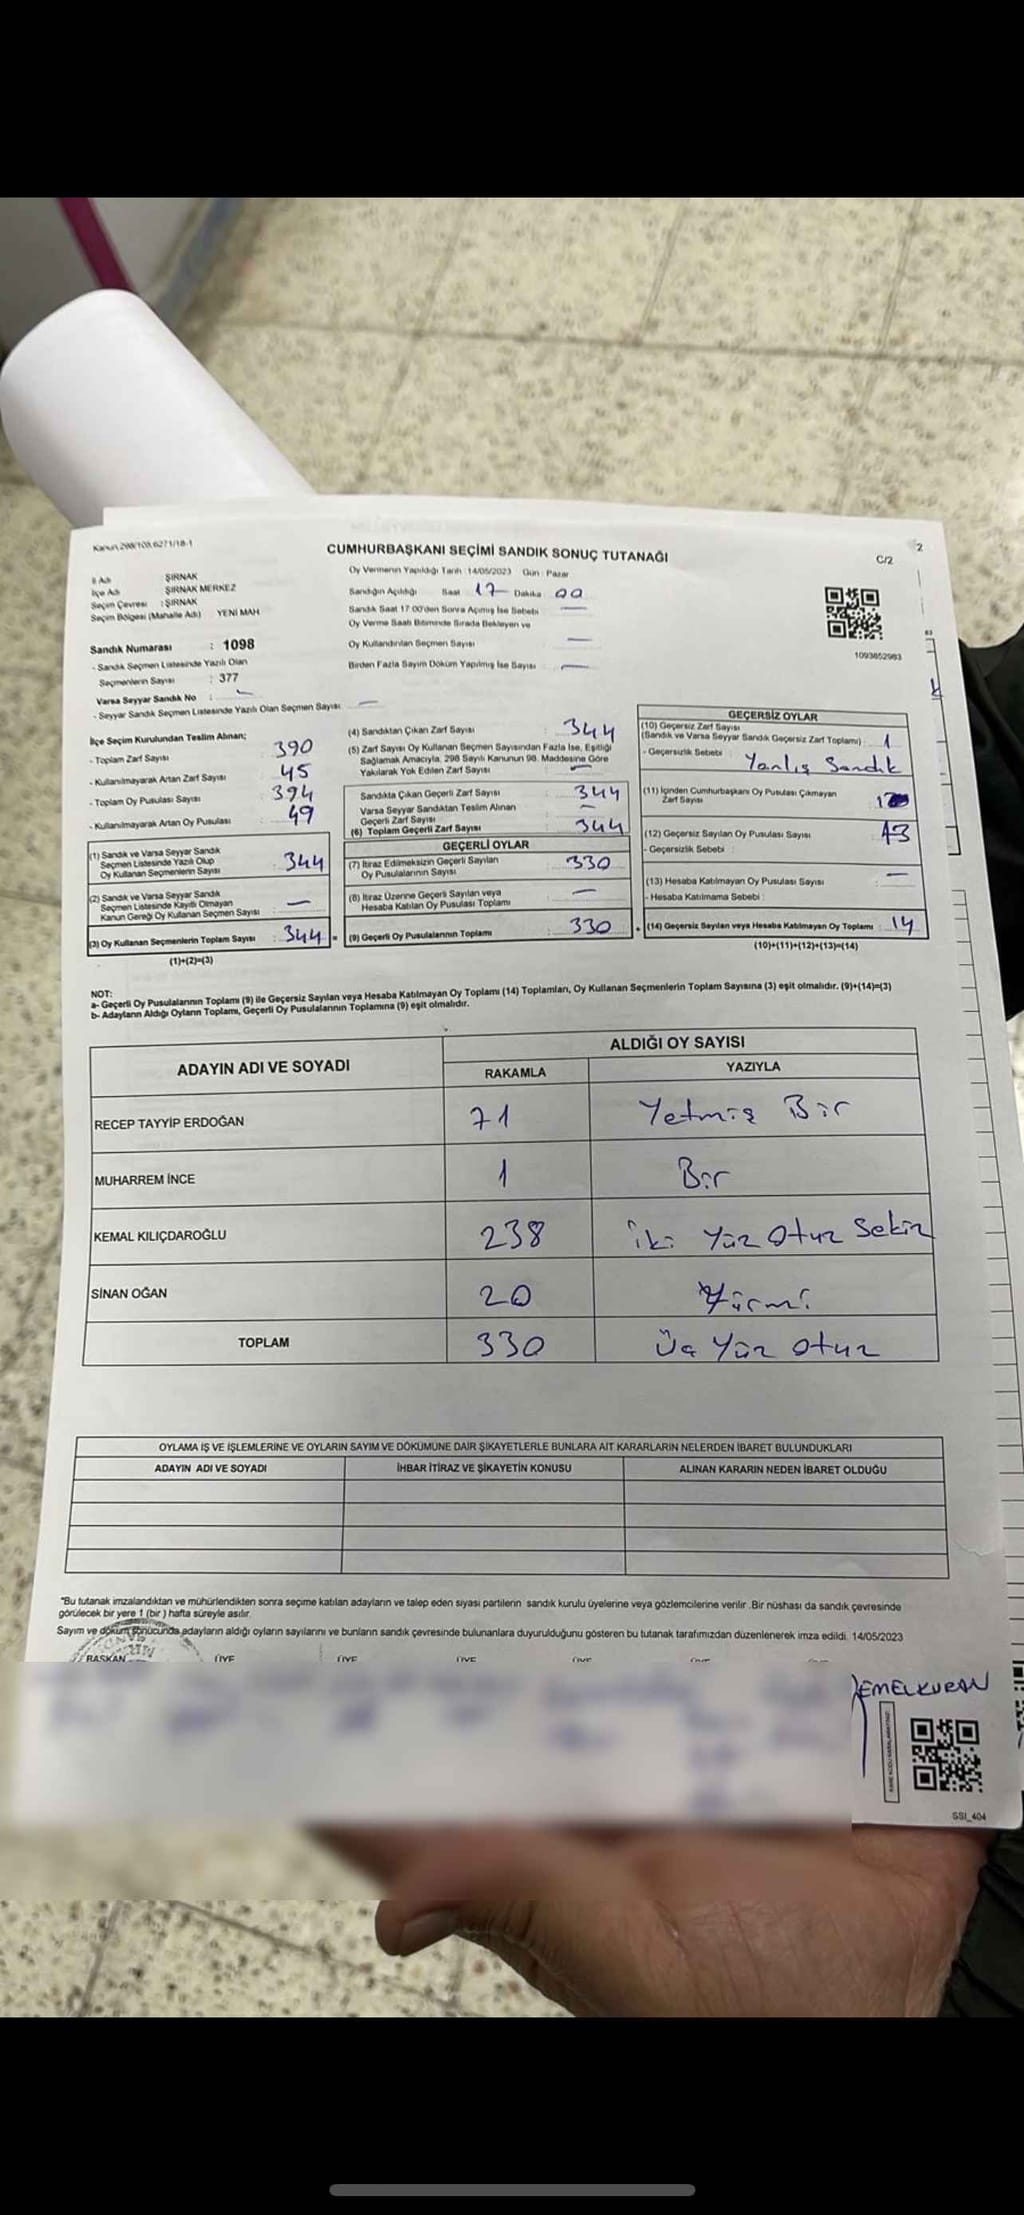 Kanun 298/109,6271/18-1
2
CUMHURBAŞKANI SEÇİMİ SANDIK SONUÇ TUTANAĞI
C/2
İl Adı ŞIRNAK
İlçe Adı ŞIRNAK MERKEZ
Seçim Çevresi : ŞIRNAK
Seçim Bölgesi (Mahalle Adı) YENİ MAH
Sandık Numarası : 1098
- Sandık Seçmen Listesinde Yazılı Olan
Seçmenlerin Sayısı : 377
Varsa Seyyar Sandık No :
- Seyyar Sandık Seçmen Listesinde Yazılı Olan Seçmen Sayısı: —
Oy Vermenin Yapıldığı Tarih :14/05/2023 Gün : Pazar
Sandığın Açıldığı Saat 17 Dakika : 00
Sandık Saat 17 00'den Sonra Açımış İse Sebebi —
Oy Verme Saati Bitiminde Sırada Bekleyen ve
Oy Kullandırılan Seçmen Sayısı —
Birden Fazla Sayım Döküm Yapılmış İse Sayısı : —
1093652983
İlçe Seçim Kurulundan Teslim Alınan;
- Toplam Zarf Sayısı : 390
- Kullanılmayarak Artan Zarf Sayısı : 45
- Toplam Oy Pusulası Sayısı : 394
- Kullanılmayarak Artan Oy Pusulası : 49
(1) Sandık ve Varsa Seyyar Sandık
Seçmen Listesinde Yazılı Olup
Oy Kullanan Seçmenlerin Sayısı : 344
(2) Sandık ve Varsa Seyyar Sandık
Seçmen Listesinde Kayıtlı Olmayan
Kanun Gereği Oy Kullanan Seçmen Sayısı : —
(3) Oy Kullanan Seçmenlerin Toplam Sayısı : 344 =
(1)+(2)=(3)
(4) Sandıktan Çıkan Zarf Sayısı : 344
(5) Zarf Sayısı Oy Kullanan Seçmen Sayısından Fazla İse, Eşitliği
Sağlamak Amacıyla, 298 Sayılı Kanunun 98. Maddesine Göre
Yakılarak Yok Edilen Zarf Sayısı : —
Sandıkta Çıkan Geçerli Zarf Sayısı : 344
Varsa Seyyar Sandıktan Teslim Alınan
Geçerli Zarf Sayısı : —
(6) Toplam Geçerli Zarf Sayısı : 344
GEÇERLİ OYLAR
(7) İtiraz Edilmeksizin Geçerli Sayılan
Oy Pusulalarının Sayısı : 330
(8) İtiraz Üzerine Geçerli Sayılan veya
Hesaba Katılan Oy Pusulası Toplamı : —
(9) Geçerli Oy Pusulalarının Toplamı : 330
GEÇERSİZ OYLAR
(10) Geçersiz Zarf Sayısı
(Sandık ve Varsa Seyyar Sandık Geçersiz Zarf Toplamı) : 1
- Geçersizlik Sebebi : Yanlış Sandık
(11) İçinden Cumhurbaşkanı Oy Pusulası Çıkmayan
Zarf Sayısı
(12) Geçersiz Sayılan Oy Pusulası Sayısı 13
- Geçersizlik Sebebi :
(13) Hesaba Katılmayan Oy Pusulası Sayısı : —
- Hesaba Katılmama Sebebi :
+ (14) Geçersiz Sayılan veya Hesaba Katılmayan Oy Toplamı : 14
(10)+(11)+(12)+(13)=(14)
NOT:
a- Geçerli Oy Pusulalarının Toplamı (9) ile Geçersiz Sayılan veya Hesaba Katılmayan Oy Toplamı (14) Toplamları, Oy Kullanan Seçmenlerin Toplam Sayısına (3) eşit olmalıdır. (9)+(14)=(3)
b- Adayların Aldığı Oyların Toplamı, Geçerli Oy Pusulalarının Toplamına (9) eşit olmalıdır.
ADAYIN ADI VE SOYADI ALDIĞI OY SAYISI
RAKAMLA YAZIYLA
RECEP TAYYİP ERDOĞAN 71 Yetmiş Bir
MUHARREM İNCE 1 Bir
KEMAL KILIÇDAROĞLU 238 İki Yüz Otuz Sekiz
SİNAN OĞAN 20 Yirmi
TOPLAM 330 Üç Yüz Otuz
OYLAMA İŞ VE İŞLEMLERİNE VE OYLARIN SAYIM VE DÖKÜMÜNE DAİR ŞİKAYETLERLE BUNLARA AİT KARARLARIN NELERDEN İBARET BULUNDUKLARI
ADAYIN ADI VE SOYADI İHBAR İTİRAZ VE ŞİKAYETİN KONUSU ALINAN KARARIN NEDEN İBARET OLDUĞU
"Bu tutanak imzalandıktan ve mühürlendikten sonra seçime katılan adayların ve talep eden siyasi partilerin sandık kurulu üyelerine veya gözlemcilerine verilir .Bir nüshası da sandık çevresinde
görülecek bir yere 1 (bir ) hafta süreyle asılır.
Sayım ve döküm sonucunda adayların aldığı oyların sayılarını ve bunların sandık çevresinde bulunanlara duyurulduğunu gösteren bu tutanak tarafımızdan düzenlenerek imza edildi. 14/05/2023
BAŞKAN ÜYE ÜYE ÜYE ÜYE
EMELKURAN
SSI_404